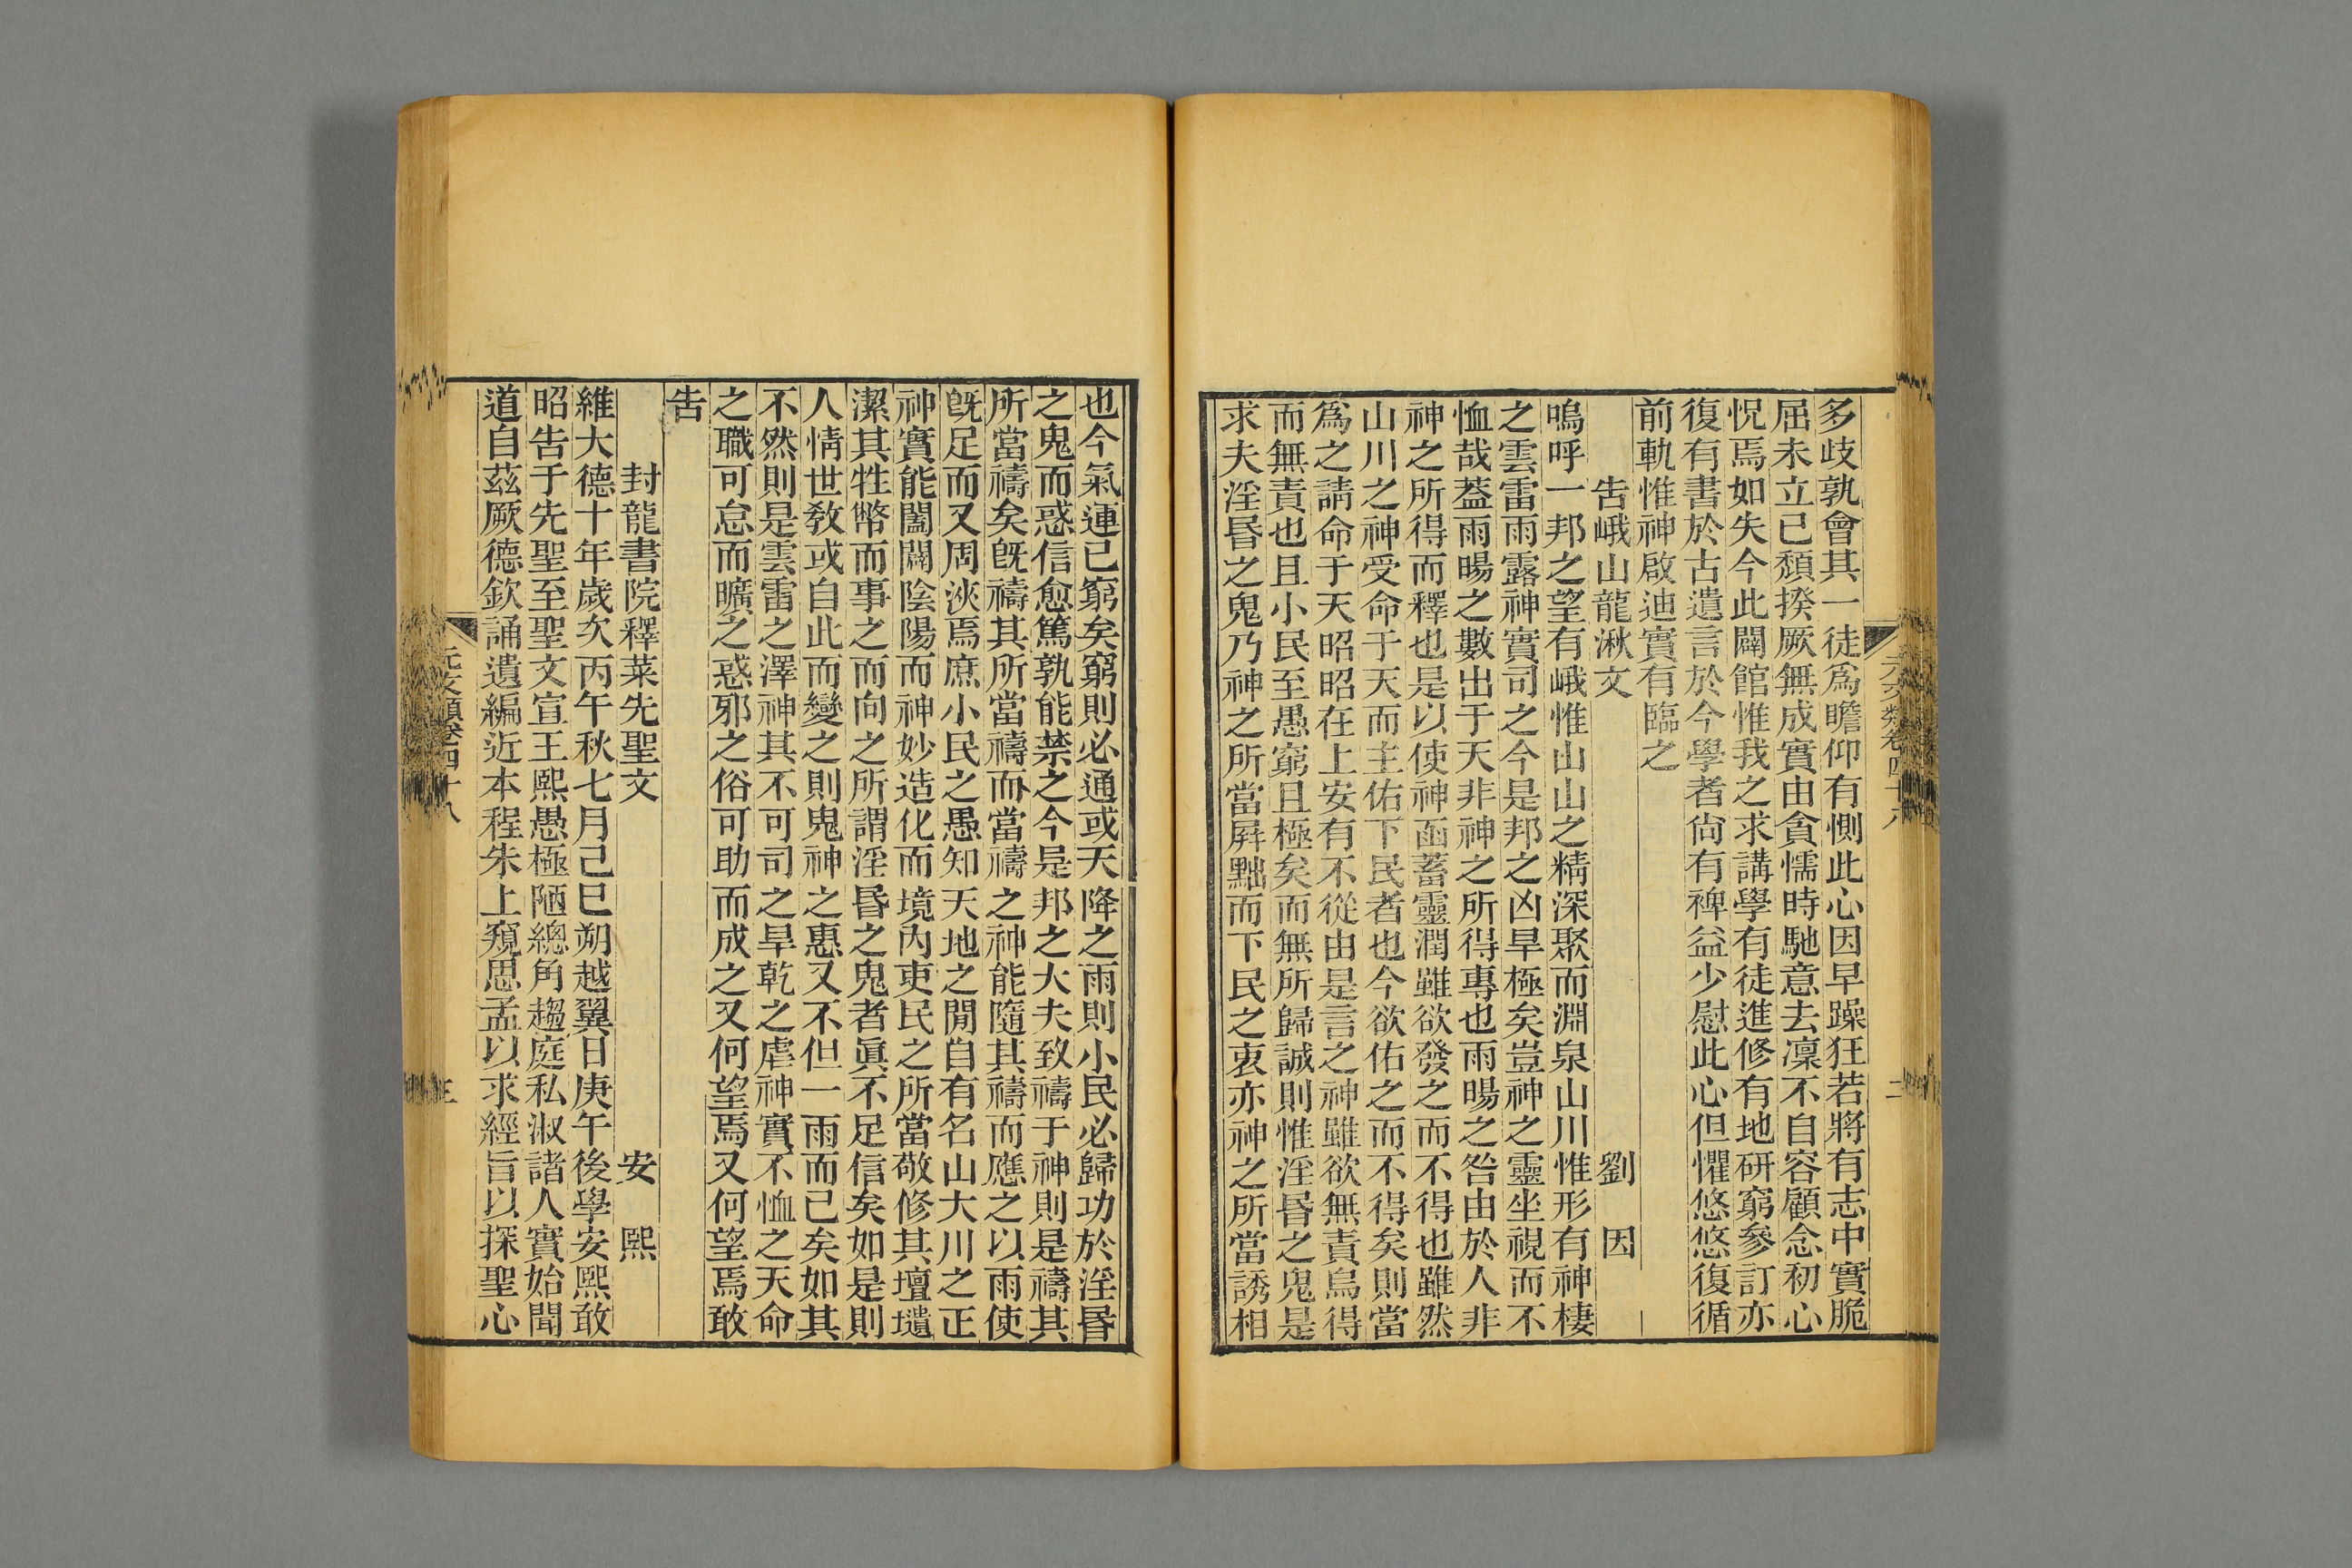 多歧孰會其一徒爲瞻仰有惻此心因早躁狂若將有志中實脆
屈未立已頹揆厥無成實由貪懦時馳意去凜不自容顧念初心
怳焉如失今此闢館惟我之求講學有徒進修有地研窮參訂亦
復有書於古遺言於今學者尙有裨益少慰此心但懼悠悠復循
前軌惟神啟迪實有臨之
告峨山龍湫文 劉因
嗚呼一邦之望有峨惟山山之精深聚而淵泉山川惟形有神棲
之雲雷雨露神實司之今是邦之凶旱極矣豈神之靈坐視而不
恤哉葢雨暘之數出于天非神之所得專也雨暘之咎由於人非
神之所得而釋也是以使神函蓄靈潤雖欲發之而不得也雖然
山川之神受命于天而主佑下民者也今欲佑之而不得矣則當
爲之請命于天昭昭在上安有不從由是言之神雖欲無責烏得
而無責也且小民至愚窮且極矣而無所歸誠則惟淫昬之鬼是
求夫淫昬之鬼乃神之所當屛黜而下民之衷亦神之所當誘相
元文類卷四十八 二
也今氣運已窮矣窮則必通或天降之雨則小民必歸功於淫昬
之鬼而惑信愈篤孰能禁之今是邦之大夫致禱于神則是禱其
所當禱矣旣禱其所當禱而當禱之神能隨其禱而應之以雨使
旣足而又周浹焉庶小民之愚知天地之閒自有名山大川之正
神實能闔闢陰陽而神妙造化而境內吏民之所當敬修其壇壝
潔其牲幣而事之而向之所謂淫昬之鬼者眞不足信矣如是則
人情世敎或自此而變之則鬼神之惠又不但一雨而已矣如其
不然則是雲雷之澤神其不可司之旱乾之虐神實不恤之天命
之職可怠而曠之惑邪之俗可助而成之又何望焉又何望焉敢
告
封龍書院釋菜先聖文 安熙
維大德十年歲次丙午秋七月己巳朔越翼日庚午後學安熙敢
昭告于先聖至聖文宣王熙愚極陋總角趨庭私淑諸人實始聞
道自茲厥德欽誦遺編近本程朱上窺思孟以求經旨以探聖心
元文類卷四十八 三